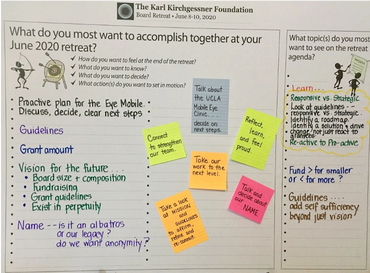 The Karl Kirchgessner Foundation
Board Retreat • June 8-10, 2020
What do you most want to accomplish together at your
June 2020 retreat?
✓ How do you want to feel at the end of the retreat?
✓ What do you want to know?
✓ What do you want to decide?
✓ What action(s) do you want to set in motion?
• Proactive plan for the Eye Mobile.
Discuss, decide, clear next steps
• Guidelines
• Grant amount
• Vision for the future...
• Board size + composition
• Fundraising
• Grant guidelines
• Exist in perpetuity
• Name -- is it an albatros
or our legacy?
do we want anonymity?
Talk about
the UCLA
Mobile Eye
Clinic
decide on
next steps.
Connect
to strengthen
our team.
Reflect,
learn,
and feel
proud
Take our
work to the
next level.
Talk and
decide about
our NAME
Take a look
at MISSION
and
GUIDELINES
to affirm,
refine and
re-commit
What topic(s) do you most
want to see on the retreat
agenda?
Learn...
Responsive vs Strategic
Look at guidelines --
responsive vs. strategic
identify a roadmap
identify a position + drive
change not just react to
grantees
Re-active to Pro-active
Fund > for smaller
or < for more?
Guidelines....
add self sufficiency
beyond just vision